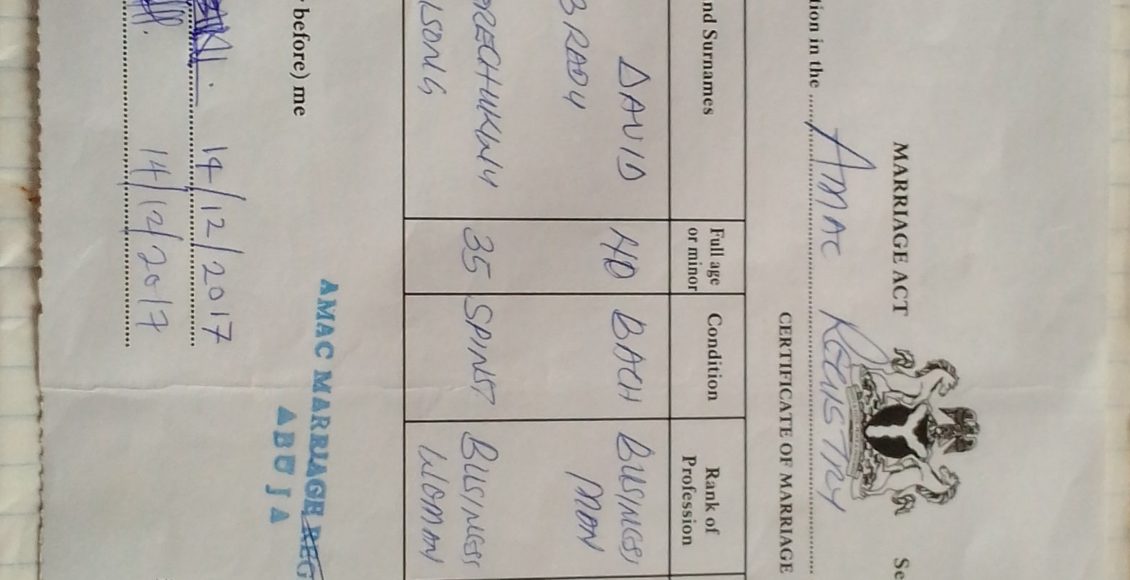 MARRIAGE ACT
Se
CERTIFICATE OF MARRIAGE
tion in the AMAC REGISTRY
nd Surnames
Full age or minor
Condition
Rank of Profession
DAVID
40
BACH
BUSINESS
BRADY
MAN
35
SPINST
BUSINESS
WOMAN
before) me
AMAC MARRIAGE REG
ABUJA
14/12/2017
14/12/2017